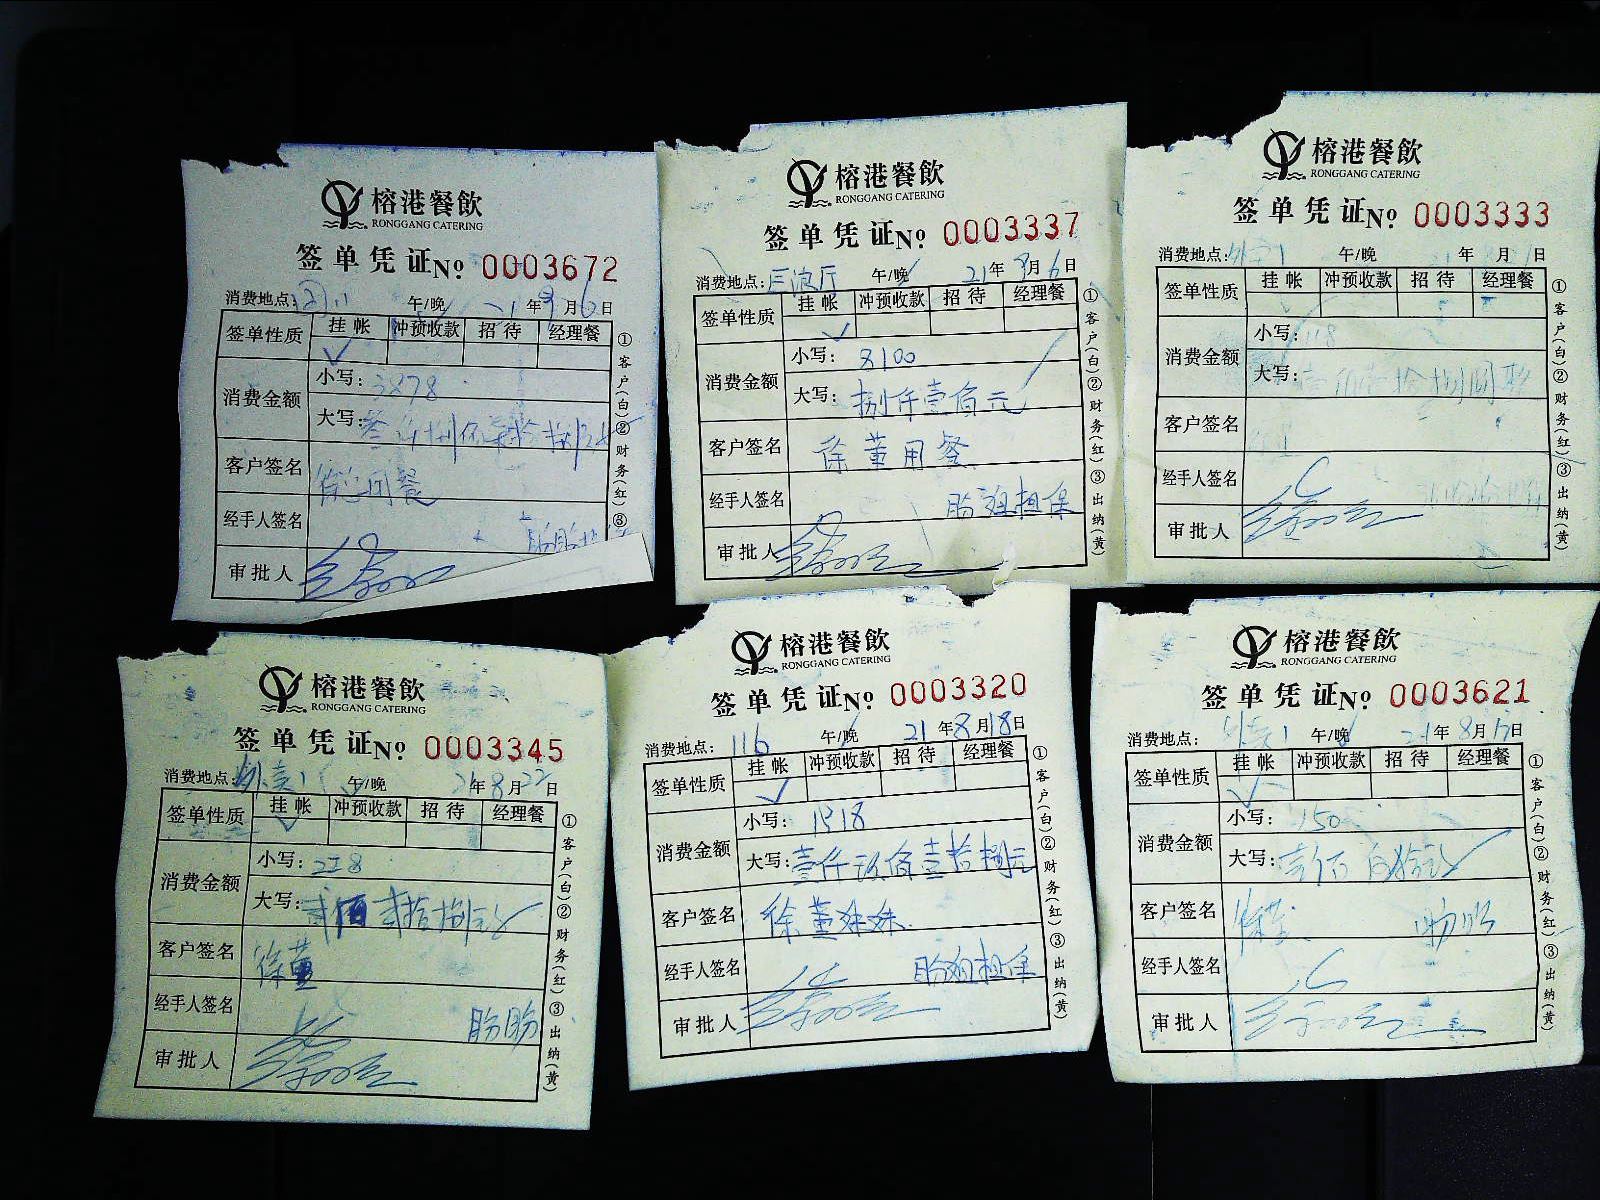 榕港餐飲
RONGGANG CATERING
签单凭证 No 0003672
消费地点: 午/晚 年 月6日
签单性质 挂帐 冲预收款 招待 经理餐
✓
消费金额 小写: 3878
大写:
客户签名
经手人签名
审批人
①客户(白)②财务(红)③
榕港餐飲
RONGGANG CATERING
签单凭证 No 0003337
消费地点: 厅 午/晚 21年8月6日
签单性质 挂帐 冲预收款 招待 经理餐
✓
消费金额 小写: 8100
大写: 捌仟壹佰元
客户签名 徐董用餐
经手人签名 盼姐担保
审批人
①客户(白)②财务(红)③出纳(黄)
榕港餐飲
RONGGANG CATERING
签单凭证 No 0003333
消费地点: 午/晚 年 月 日
签单性质 挂帐 冲预收款 招待 经理餐
消费金额 小写: 118
大写:
客户签名
经手人签名
审批人
①客户(白)②财务(红)③出纳(黄)
榕港餐飲
RONGGANG CATERING
签单凭证 No 0003345
消费地点: 外卖1 午/晚 21年8月22日
签单性质 挂帐 冲预收款 招待 经理餐
✓
消费金额 小写: 228
大写: 贰佰贰拾捌元
客户签名 徐董
经手人签名 盼盼
审批人
①客户(白)②财务(红)③出纳(黄)
榕港餐飲
RONGGANG CATERING
签单凭证 No 0003320
消费地点: 116 午/晚 21年8月18日
签单性质 挂帐 冲预收款 招待 经理餐
✓
消费金额 小写: 1918
大写: 壹仟玖佰壹拾捌元
客户签名 徐董妹妹
经手人签名 盼姐担保
审批人
①客户(白)②财务(红)③出纳(黄)
榕港餐飲
RONGGANG CATERING
签单凭证 No 0003621
消费地点: 外卖1 午/晚 21年8月17日
签单性质 挂帐 冲预收款 招待 经理餐
✓
消费金额 小写: 150
大写: 壹佰伍拾元
客户签名 徐董 盼盼
经手人签名
审批人
①客户(白)②财务(红)③出纳(黄)